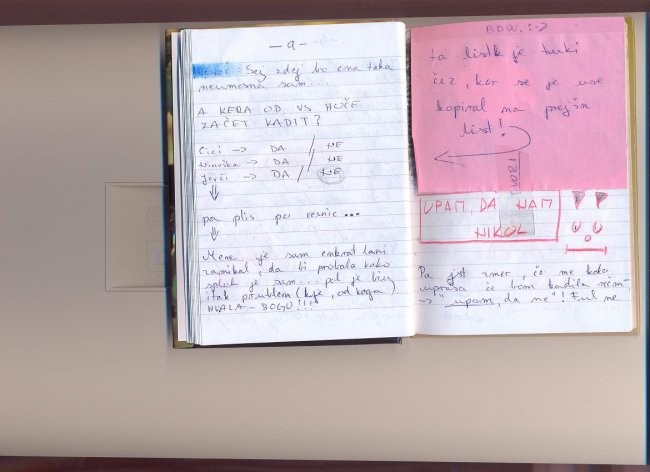 - a -
: Sej zdej bo ena taka
neumesna sam...
A KERA OD VS HOČE
ZAČET KADIT?
Cici → DA / NE
Ninočka → DA / NE
Jerči → DA / NE
pa plis po resnic...
Mene je sam enkrat lani
zamikal, da bi probala kako
sploh je sam... pol je biu
itak problem (kje, od koga)
HVALA BOGU!!!
BDW. :->
ta listk je tuki
čez, ker se je use
kopiral na prejšn
list!
UPAM, DA NAM
NIKOL
Pa jst zmer, če me kdo
upraša če bom kadila rečm
→ "upam, da ne"! Ful me